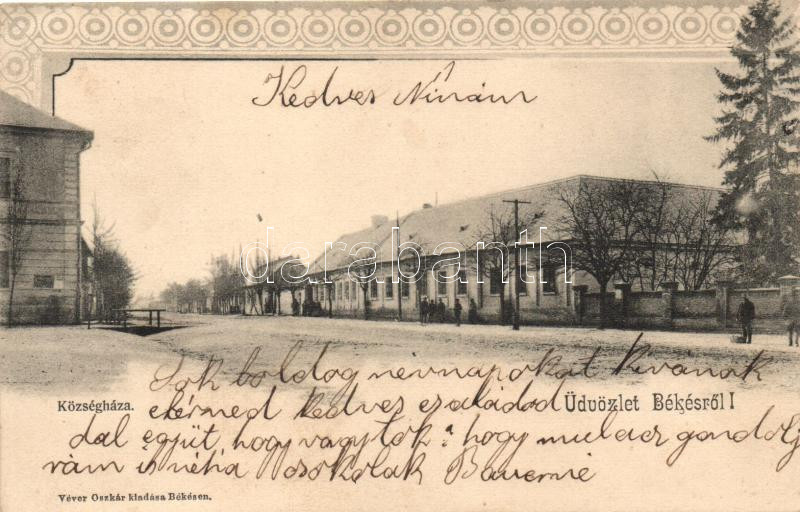 Kedves Ninám
darabanth
Sok boldog névnapokat kivánok
Községháza.
elérned kedves családod
Üdvözlet Békésről!
dal együt, hogy vagytok? hogy mulacz gondolj
rám is néha csokolak Bauerné
Véver Oszkár kiadása Békésen.